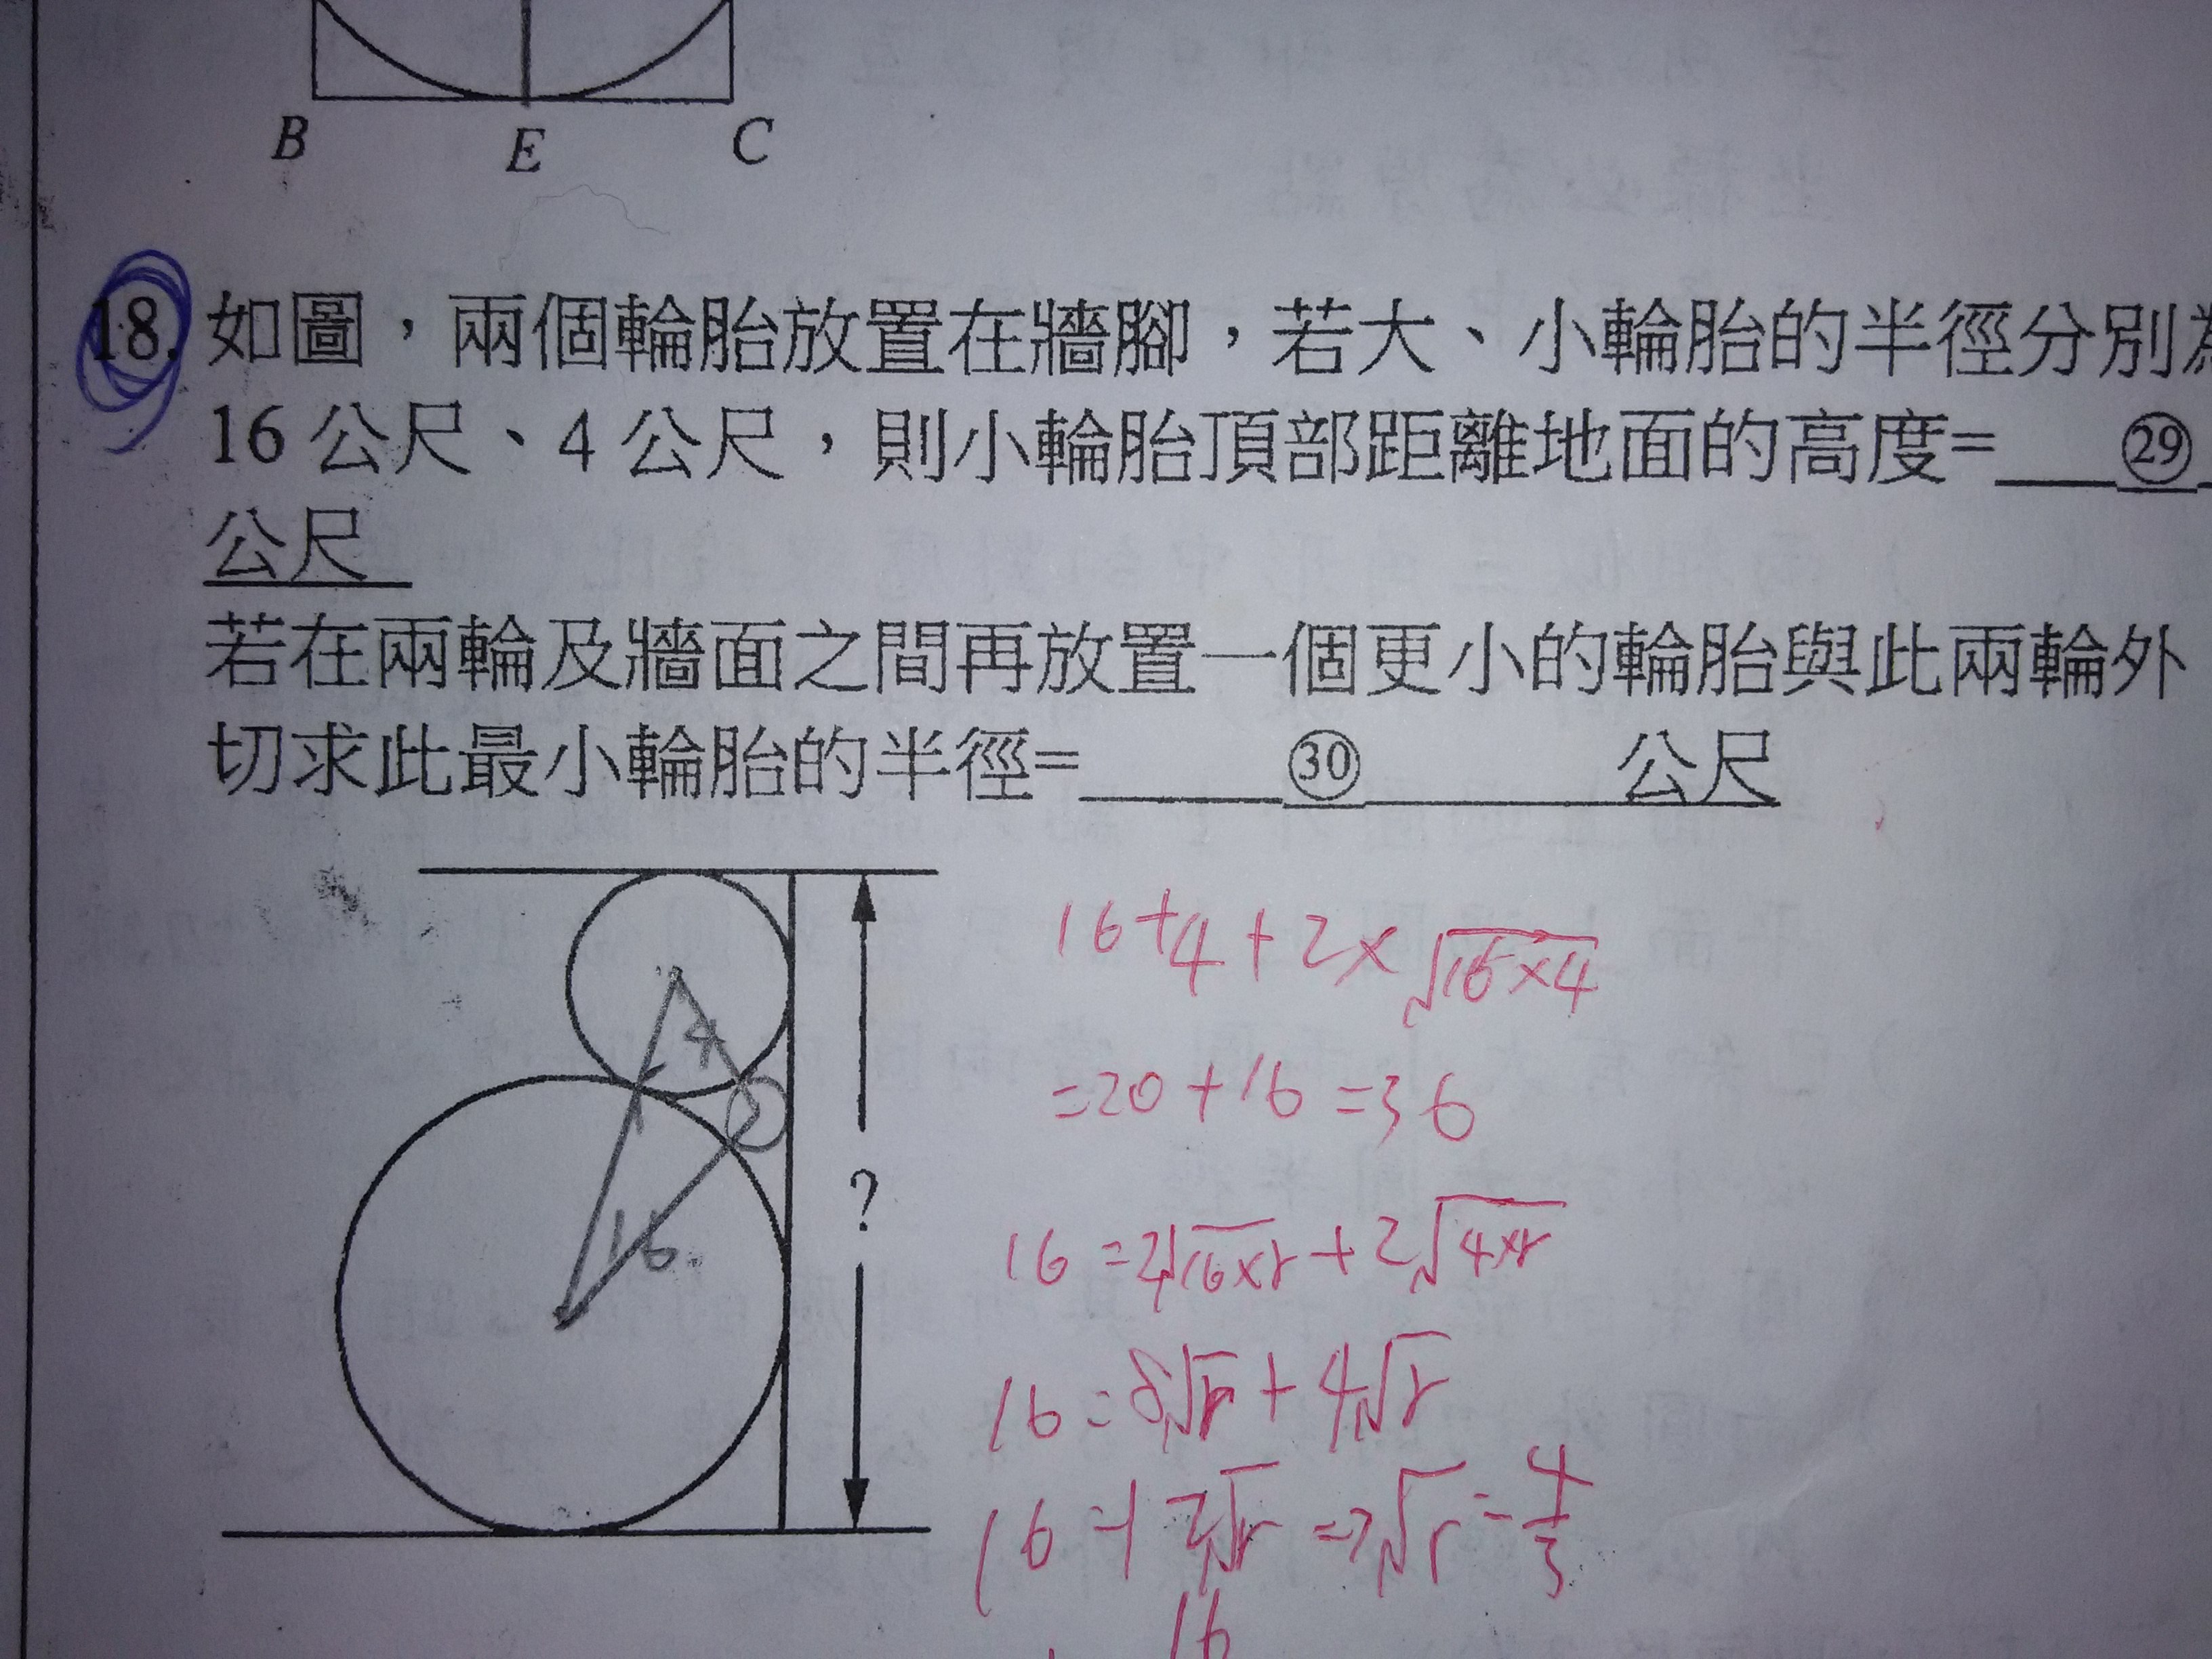 B E C
18. 如圖，兩個輪胎放置在牆腳，若大、小輪胎的半徑分別為
16 公尺、4 公尺，則小輪胎頂部距離地面的高度=___㉙_
公尺
若在兩輪及牆面之間再放置一個更小的輪胎與此兩輪外
切求此最小輪胎的半徑=___㉚___公尺
16+4+2×√16×4
=20+16=36
4
?
16.
16=2√16×r+2√4×r
16=8√r+4√r
16=12√r⇒√r=4/3
16